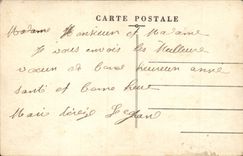 CARTE POSTALE
Madame Monsieur et Madame
Je vous envois les Meilleure
vœux et bone heureux anne
santé et bone heur
Marie